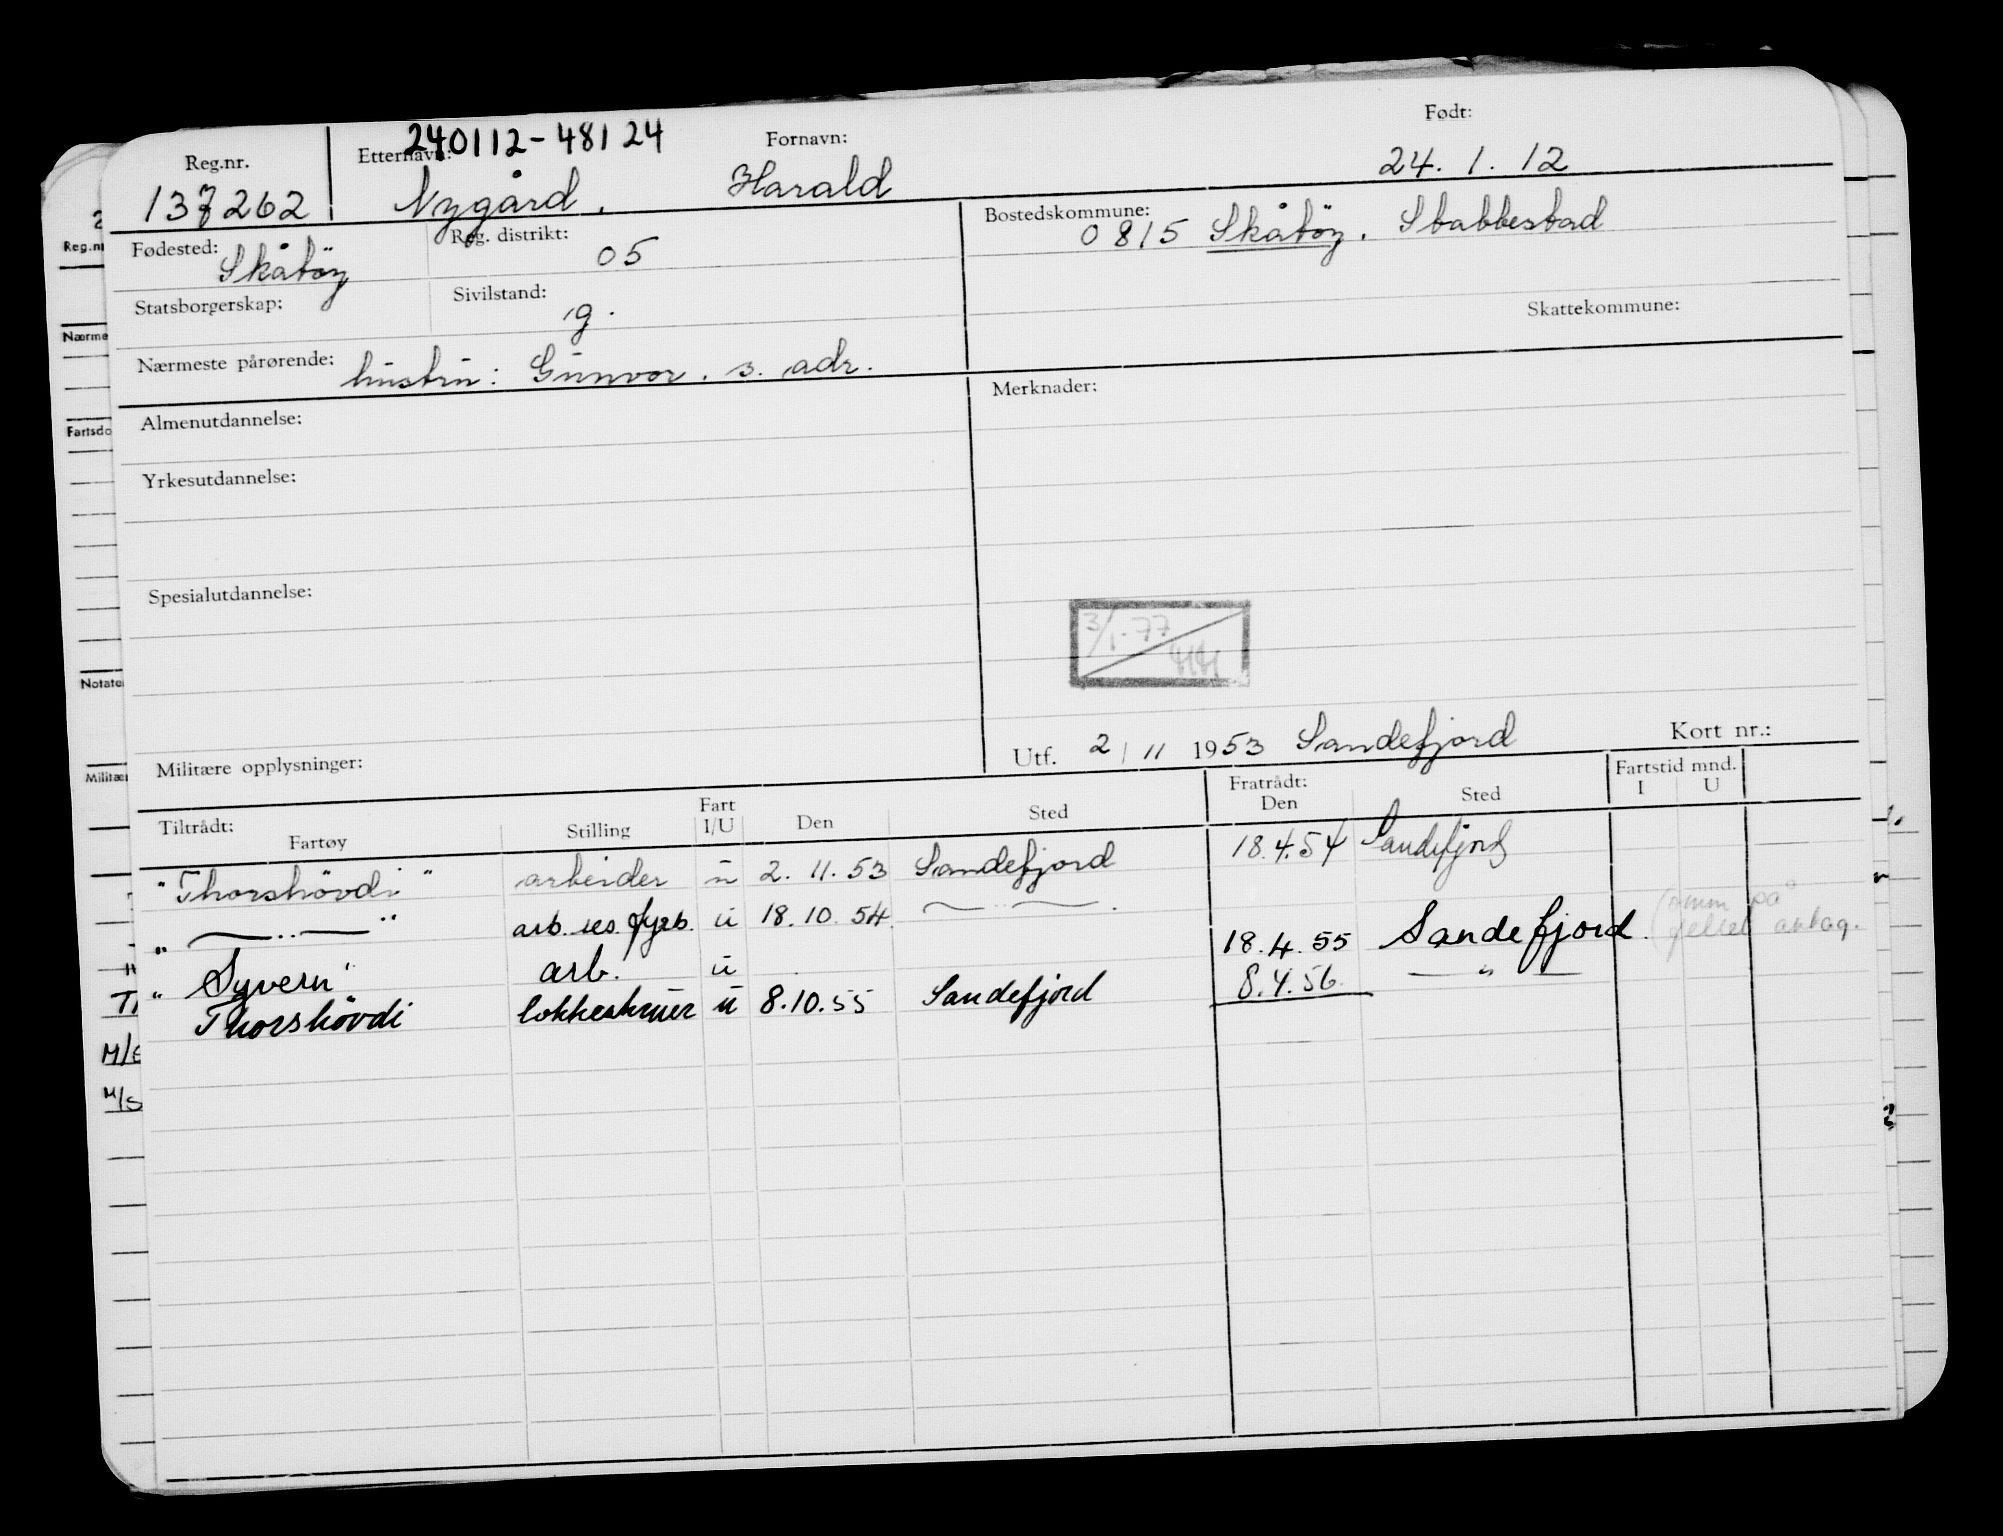 240112-48124
Reg.nr. Etternavn: Fornavn: Født:
137262 Nygård, Harald 24. 1. 12
Fødested: Skåtöy Reg. distrikt: 05 Bostedskommune: 0815 Skåtöy. Stabbestad
Statsborgerskap: Sivilstand: g. Skattekommune:
Nærmeste pårørende: hustru: Gunvor. s. adr.
Almenutdannelse: Merknader:
Yrkesutdannelse:
Spesialutdannelse:
3/1-77
HH
Militære opplysninger: Utf. 2/11 1953 Sandefjord Kort nr.:
Tiltrådt: Fratrådt: Fartstid mnd.
Fartøy Stilling Fart I/U Den Sted Den Sted I U
"Thorshövdi" arbeider u 2. 11. 53 Sandefjord 18.4.54 Sandefjord
" — .. — " arb. res. fyrb. u 18. 10. 54 — .. — . 18. 4. 55 Sandefjord. (omm på
"Syvern" arb. u 8.4.56. — " —
" Thorshövdi u 8.10.55 Sandefjord
Reg.n
Nærme
Fartsdo
Notate
Militæ
M/
M/S